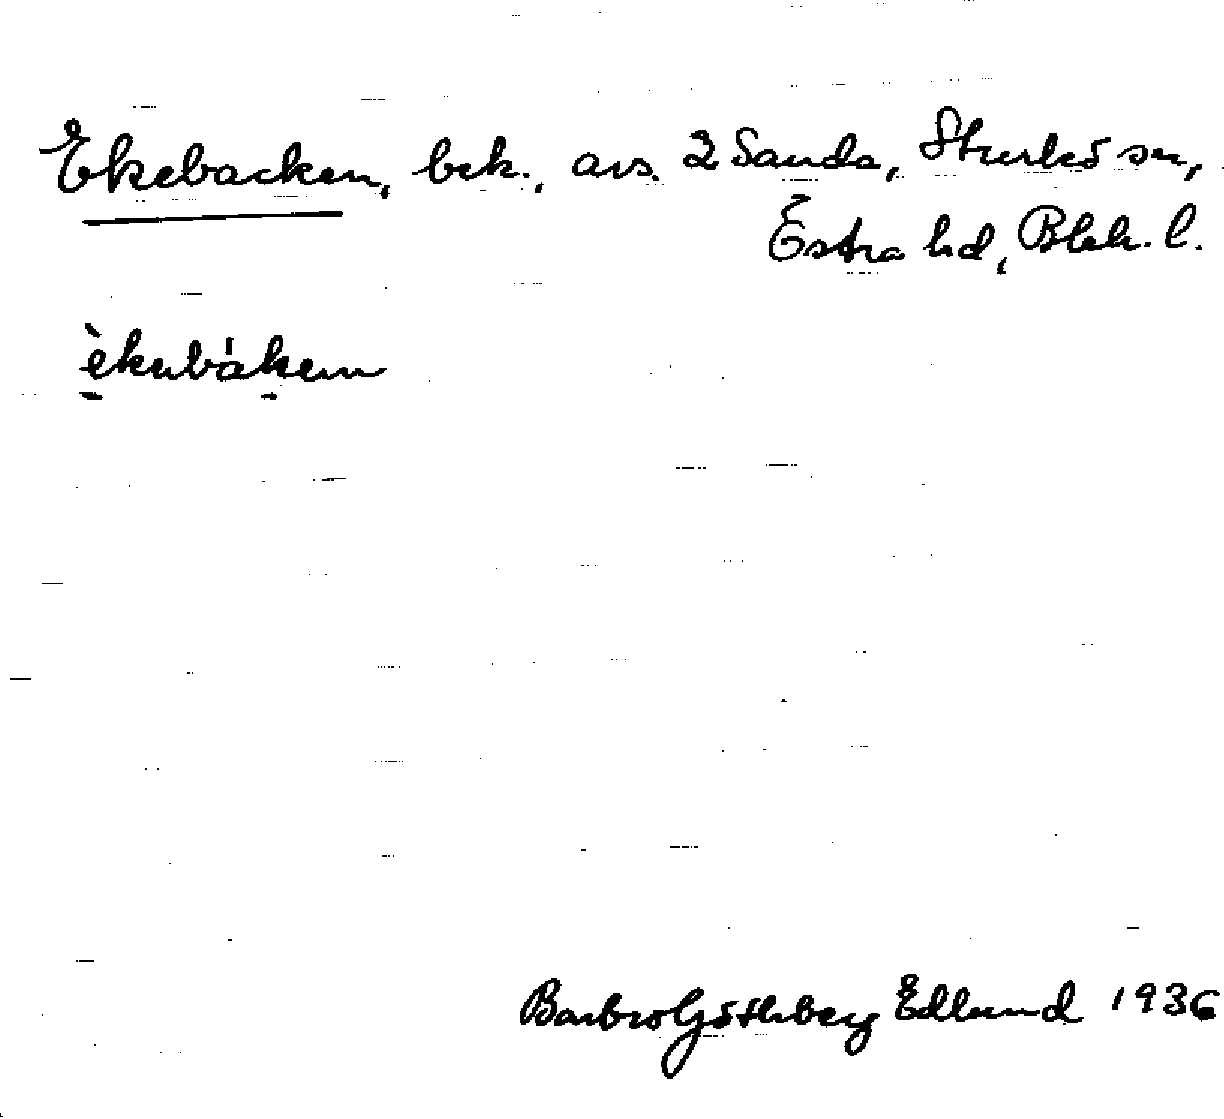 Ekebacken, bek., avs. 2 Sanda, Sturkö sn,
Östra hd, Blek. l.
Barbro Götlberg Edlund 1936